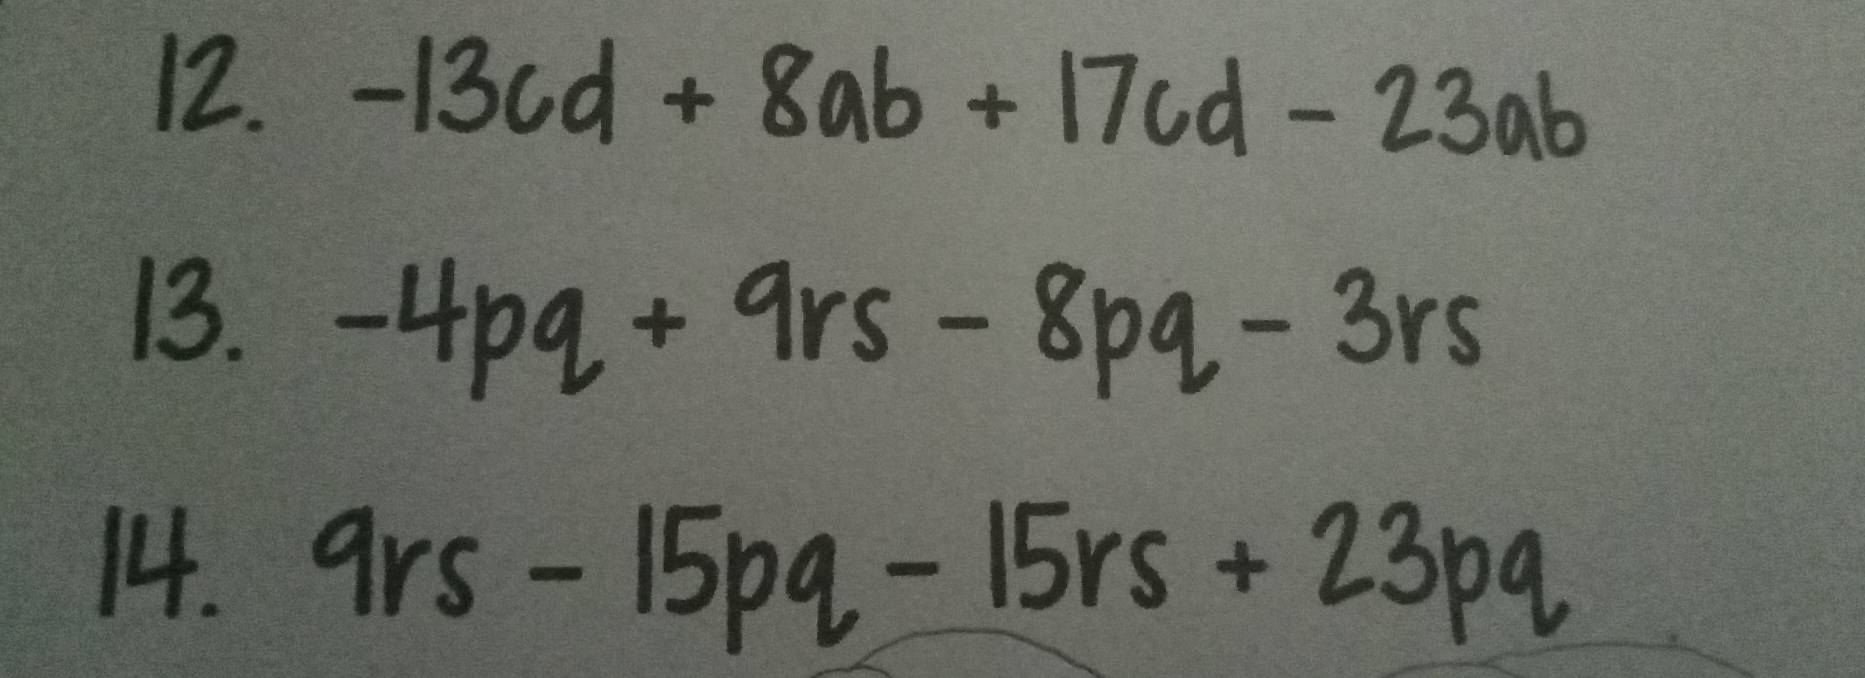 12. -13cd + 8ab + 17cd - 23ab
13. -4pq + 9rs - 8pq - 3rs
14. 9rs - 15pq - 15rs + 23pq